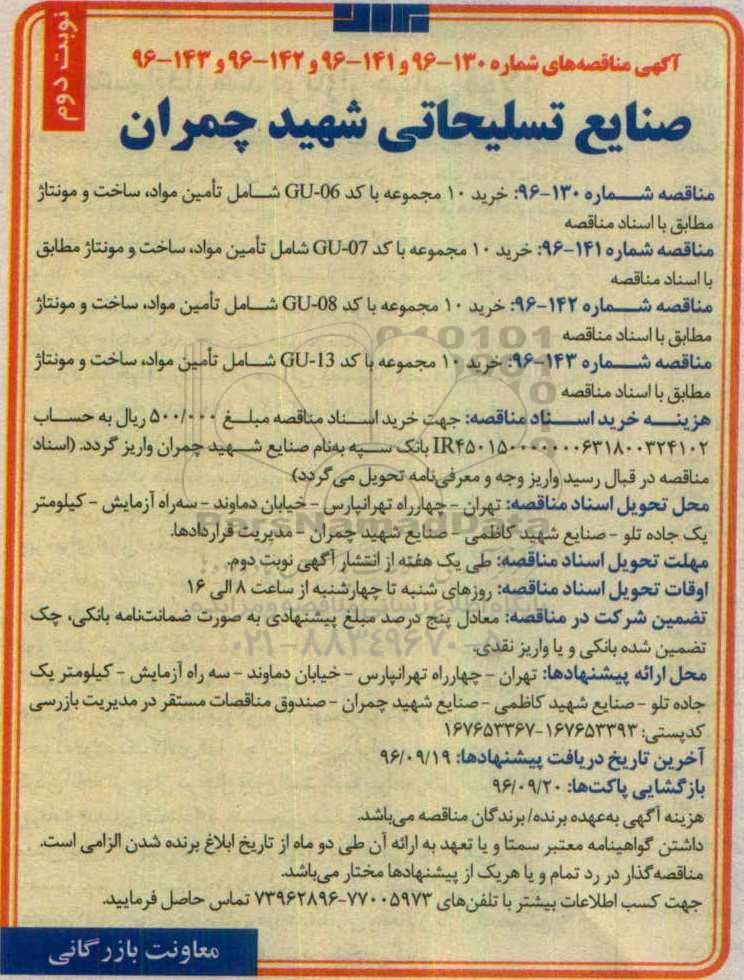 نوبت دوم
آگهی مناقصه‌های شماره ۱۳۰-۹۶ و ۱۴۱-۹۶ و ۱۴۲-۹۶ و ۱۴۳-۹۶
صنایع تسلیحاتی شهید چمران
مناقصه شماره ۱۳۰-۹۶: خرید ۱۰ مجموعه با کد GU-06 شامل تأمین مواد، ساخت و مونتاژ
مطابق با اسناد مناقصه
مناقصه شماره ۱۴۱-۹۶: خرید ۱۰ مجموعه با کد GU-07 شامل تأمین مواد، ساخت و مونتاژ مطابق
با اسناد مناقصه
مناقصه شماره ۱۴۲-۹۶: خرید ۱۰ مجموعه با کد GU-08 شامل تأمین مواد، ساخت و مونتاژ
مطابق با اسناد مناقصه
مناقصه شماره ۱۴۳-۹۶: خرید ۱۰ مجموعه با کد GU-13 شامل تأمین مواد، ساخت و مونتاژ
مطابق با اسناد مناقصه
هزینه خرید اسناد مناقصه: جهت خرید اسناد مناقصه مبلغ ۵۰۰/۰۰۰ ریال به حساب
IR۴۵۰۱۵۰۰۰۰۰۰۰۶۳۱۸۰۰۳۲۴۱۰۲ بانک سپه به‌نام صنایع شهید چمران واریز گردد. (اسناد
مناقصه در قبال رسید واریز وجه و معرفی‌نامه تحویل می‌گردد)
محل تحویل اسناد مناقصه: تهران - چهارراه تهرانپارس - خیابان دماوند - سه‌راه آزمایش - کیلومتر
یک جاده تلو - صنایع شهید کاظمی - صنایع شهید چمران - مدیریت قراردادها.
ParsNamadData
مهلت تحویل اسناد مناقصه: طی یک هفته از انتشار آگهی نوبت دوم.
اوقات تحویل اسناد مناقصه: روزهای شنبه تا چهارشنبه از ساعت ۸ الی ۱۶
تضمین شرکت در مناقصه: معادل پنج درصد مبلغ پیشنهادی به صورت ضمانت‌نامه بانکی، چک
تضمین شده بانکی و یا واریز نقدی.
۰۲۱-۸۸۳۴۹۶۷۰-۵
محل ارائه پیشنهادها: تهران - چهارراه تهرانپارس - خیابان دماوند - سه راه آزمایش - کیلومتر یک
جاده تلو - صنایع شهید کاظمی - صنایع شهید چمران - صندوق مناقصات مستقر در مدیریت بازرسی
کدپستی: ۱۶۷۶۵۳۳۹۳-۱۶۷۶۵۳۳۶۷
آخرین تاریخ دریافت پیشنهادها: ۹۶/۰۹/۱۹
بازگشایی پاکت‌ها: ۹۶/۰۹/۲۰
هزینه آگهی به‌عهده برنده/برندگان مناقصه می‌باشد.
داشتن گواهینامه معتبر سمتا و یا تعهد به ارائه آن طی دو ماه از تاریخ ابلاغ برنده شدن الزامی است.
مناقصه‌گذار در رد تمام و یا هریک از پیشنهادها مختار می‌باشد.
جهت کسب اطلاعات بیشتر با تلفن‌های ۷۷۰۰۵۹۷۳-۷۳۹۶۲۸۹۶ تماس حاصل فرمایید.
معاونت بازرگانی